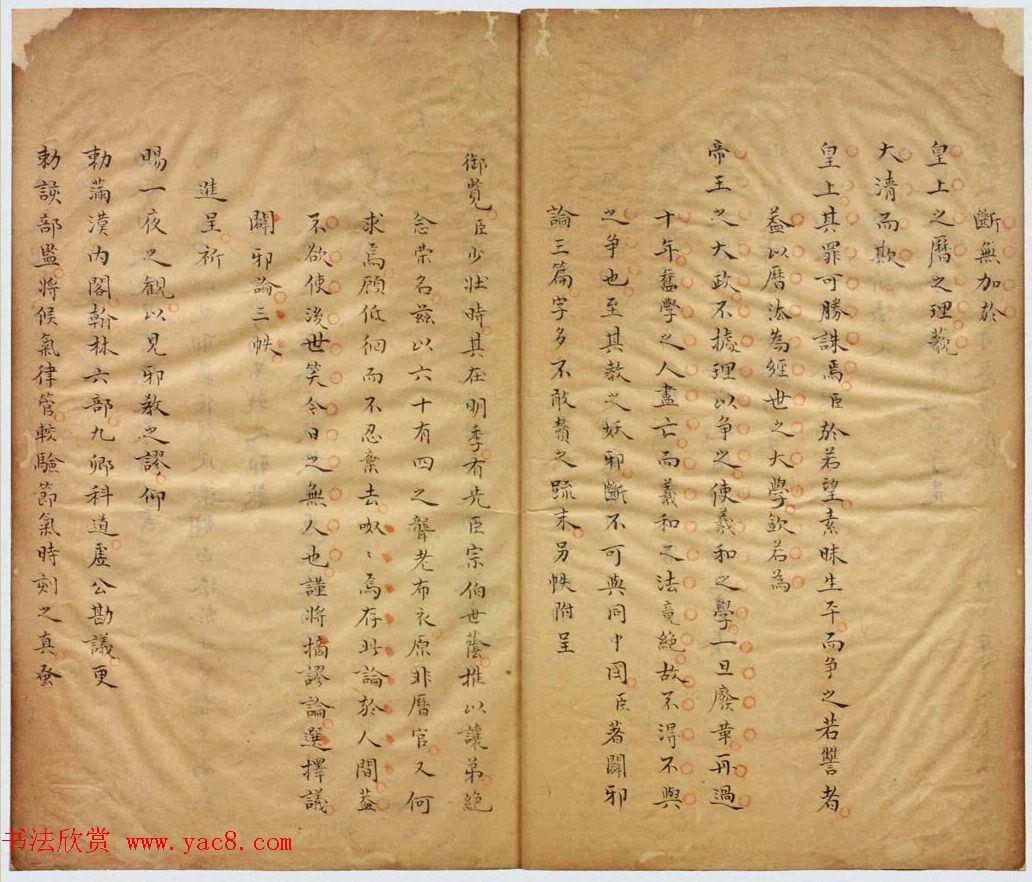 斷無加於
皇上之曆之理藐
大清而欺
皇上其罪可勝誅焉臣於若望素昧生平而爭之若讐者
葢以曆法為經世之大學欽若為
帝王之大政不據理以爭之使羲和之學一旦廢革再過
十年舊學之人盡亡而羲和之法竟絶故不得不與
之爭也至其教之妖邪斷不可與同中国臣著闢邪
論三篇字多不敢賷之疏末另帙附呈
御覽臣少壯時其在明季有先臣宗伯世蔭推以讓弟絶
念荣名兹以六十有四之聾老布衣原非曆官又何
求焉顧低徊而不忍棄去呶〻焉存此論於人間葢
不欲使後世笑今日之無人也謹將摘謬論選擇議
闢邪論三帙
進呈祈
賜一夜之觀以見邪教之謬仰
勅滿漢内閣翰林六部九卿科道虛公勘議更
勅該部監將候氣律管較驗節氣時刻之真
书法欣赏 www.yac8.com